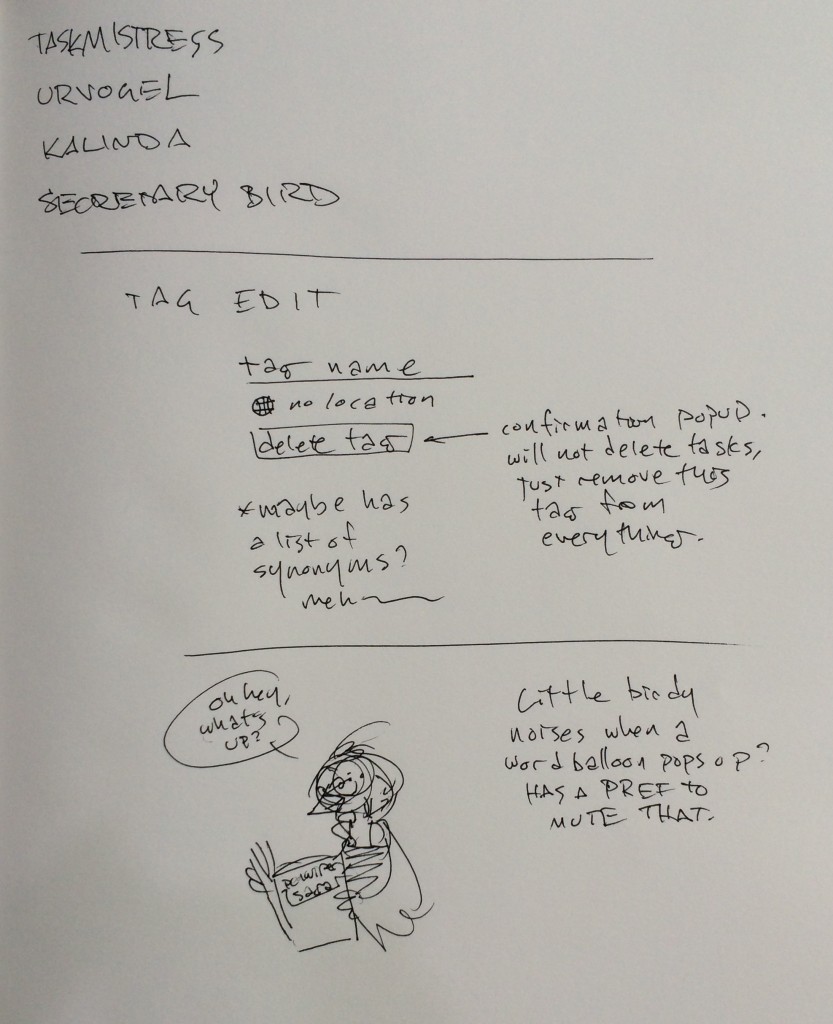 TASKMISTRESS
URVOGEL
KALINDA
SECRETARY BIRD
TAG EDIT
tag name
no location
delete tag
confirmation popup.
will not delete tasks,
just remove this
tag from
everything.
*maybe has
a list of
synonyms?
meh
oh hey,
what's
up?
Little birdy
noises when a
word balloon pops up?
HAS A PREF to
MUTE THAT.